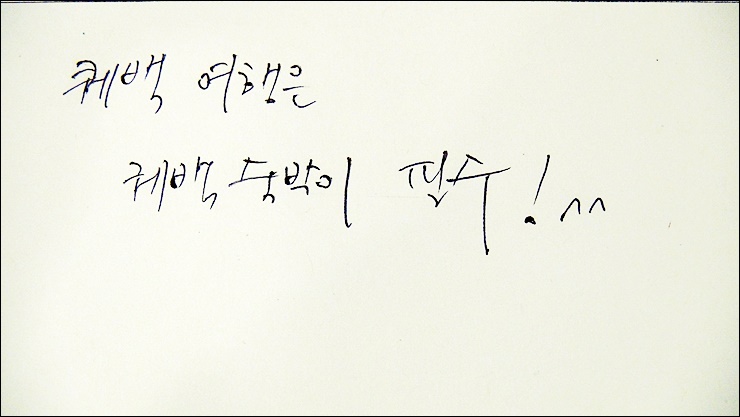 퀘백 여행은
퀘백 숙박이 필수! ^^